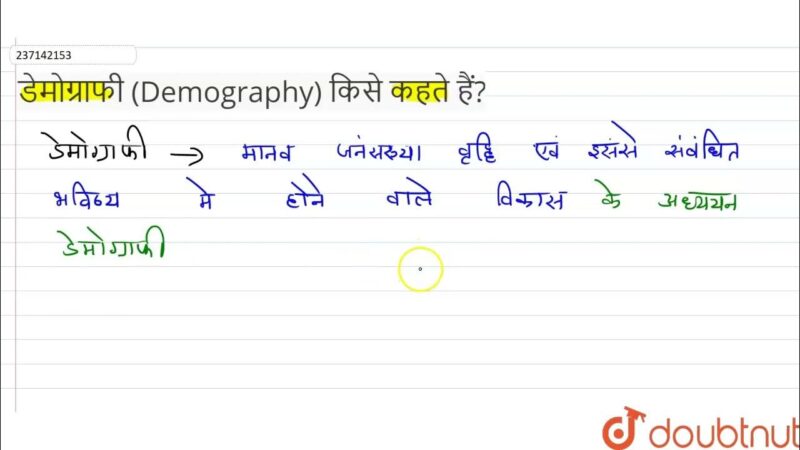 237142153
डेमोग्राफी (Demography) किसे कहते हैं?
डेमोग्राफी → मानव जनसंख्या वृद्धि एवं इससे संबंधित
भविष्य मे होने वाले विकास के अध्ययन
डेमोग्राफी
doubtnut